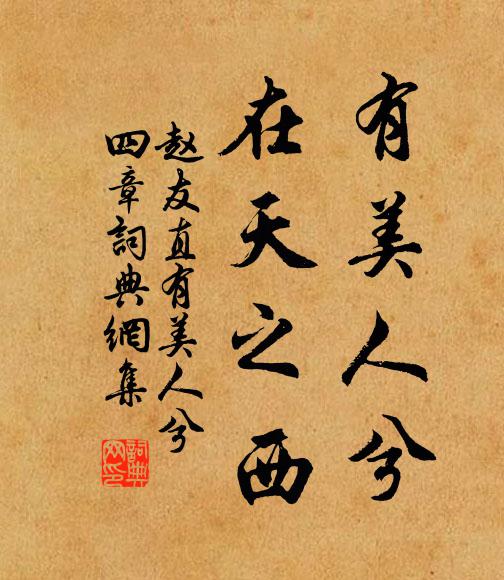 有美人兮
在天之西
赵友直有美人兮
四章詞典網集
詞典
网印